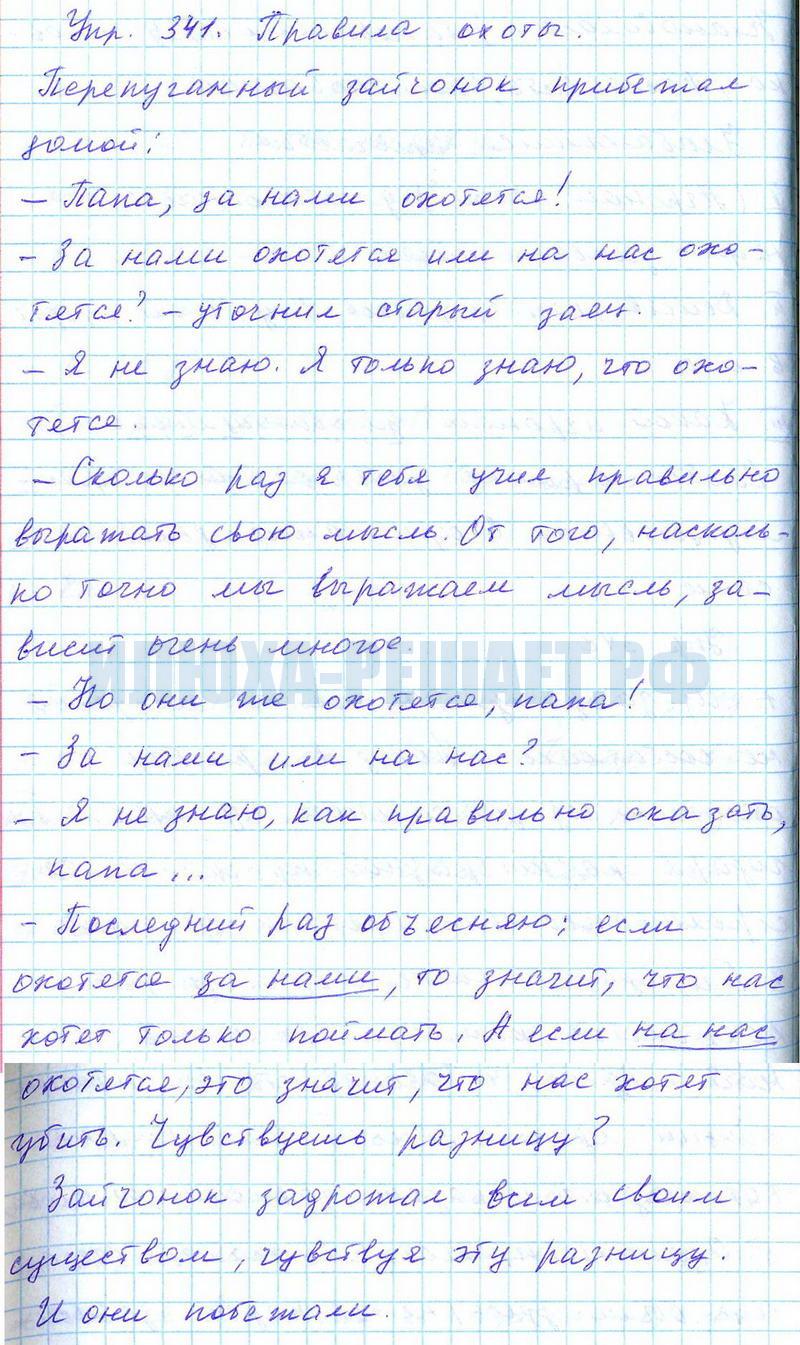 Упр. 341. Правила охоты.
Перепуганный зайчонок прибежал
домой:
– Папа, за нами охотятся!
– За нами охотятся или на нас охо-
тятся? – уточнил старый заяц.
– Я не знаю. Я только знаю, что охо-
тятся.
– Сколько раз я тебя учил правильно
выражать свою мысль. От того, насколь-
ко точно мы выражаем мысль, за-
висит очень многое.
ИЛЮХА-РЕШАЕТ.РФ
– Но они же охотятся, папа!
– За нами или на нас?
– Я не знаю, как правильно сказать,
папа...
– Последний раз объясняю: если
охотятся за нами, то значит, что нас
хотят только поймать. А если на нас
охотятся, это значит, что нас хотят
убить. Чувствуешь разницу?
Зайчонок задрожал всем своим
существом, чувствуя эту разницу.
И они побежали.